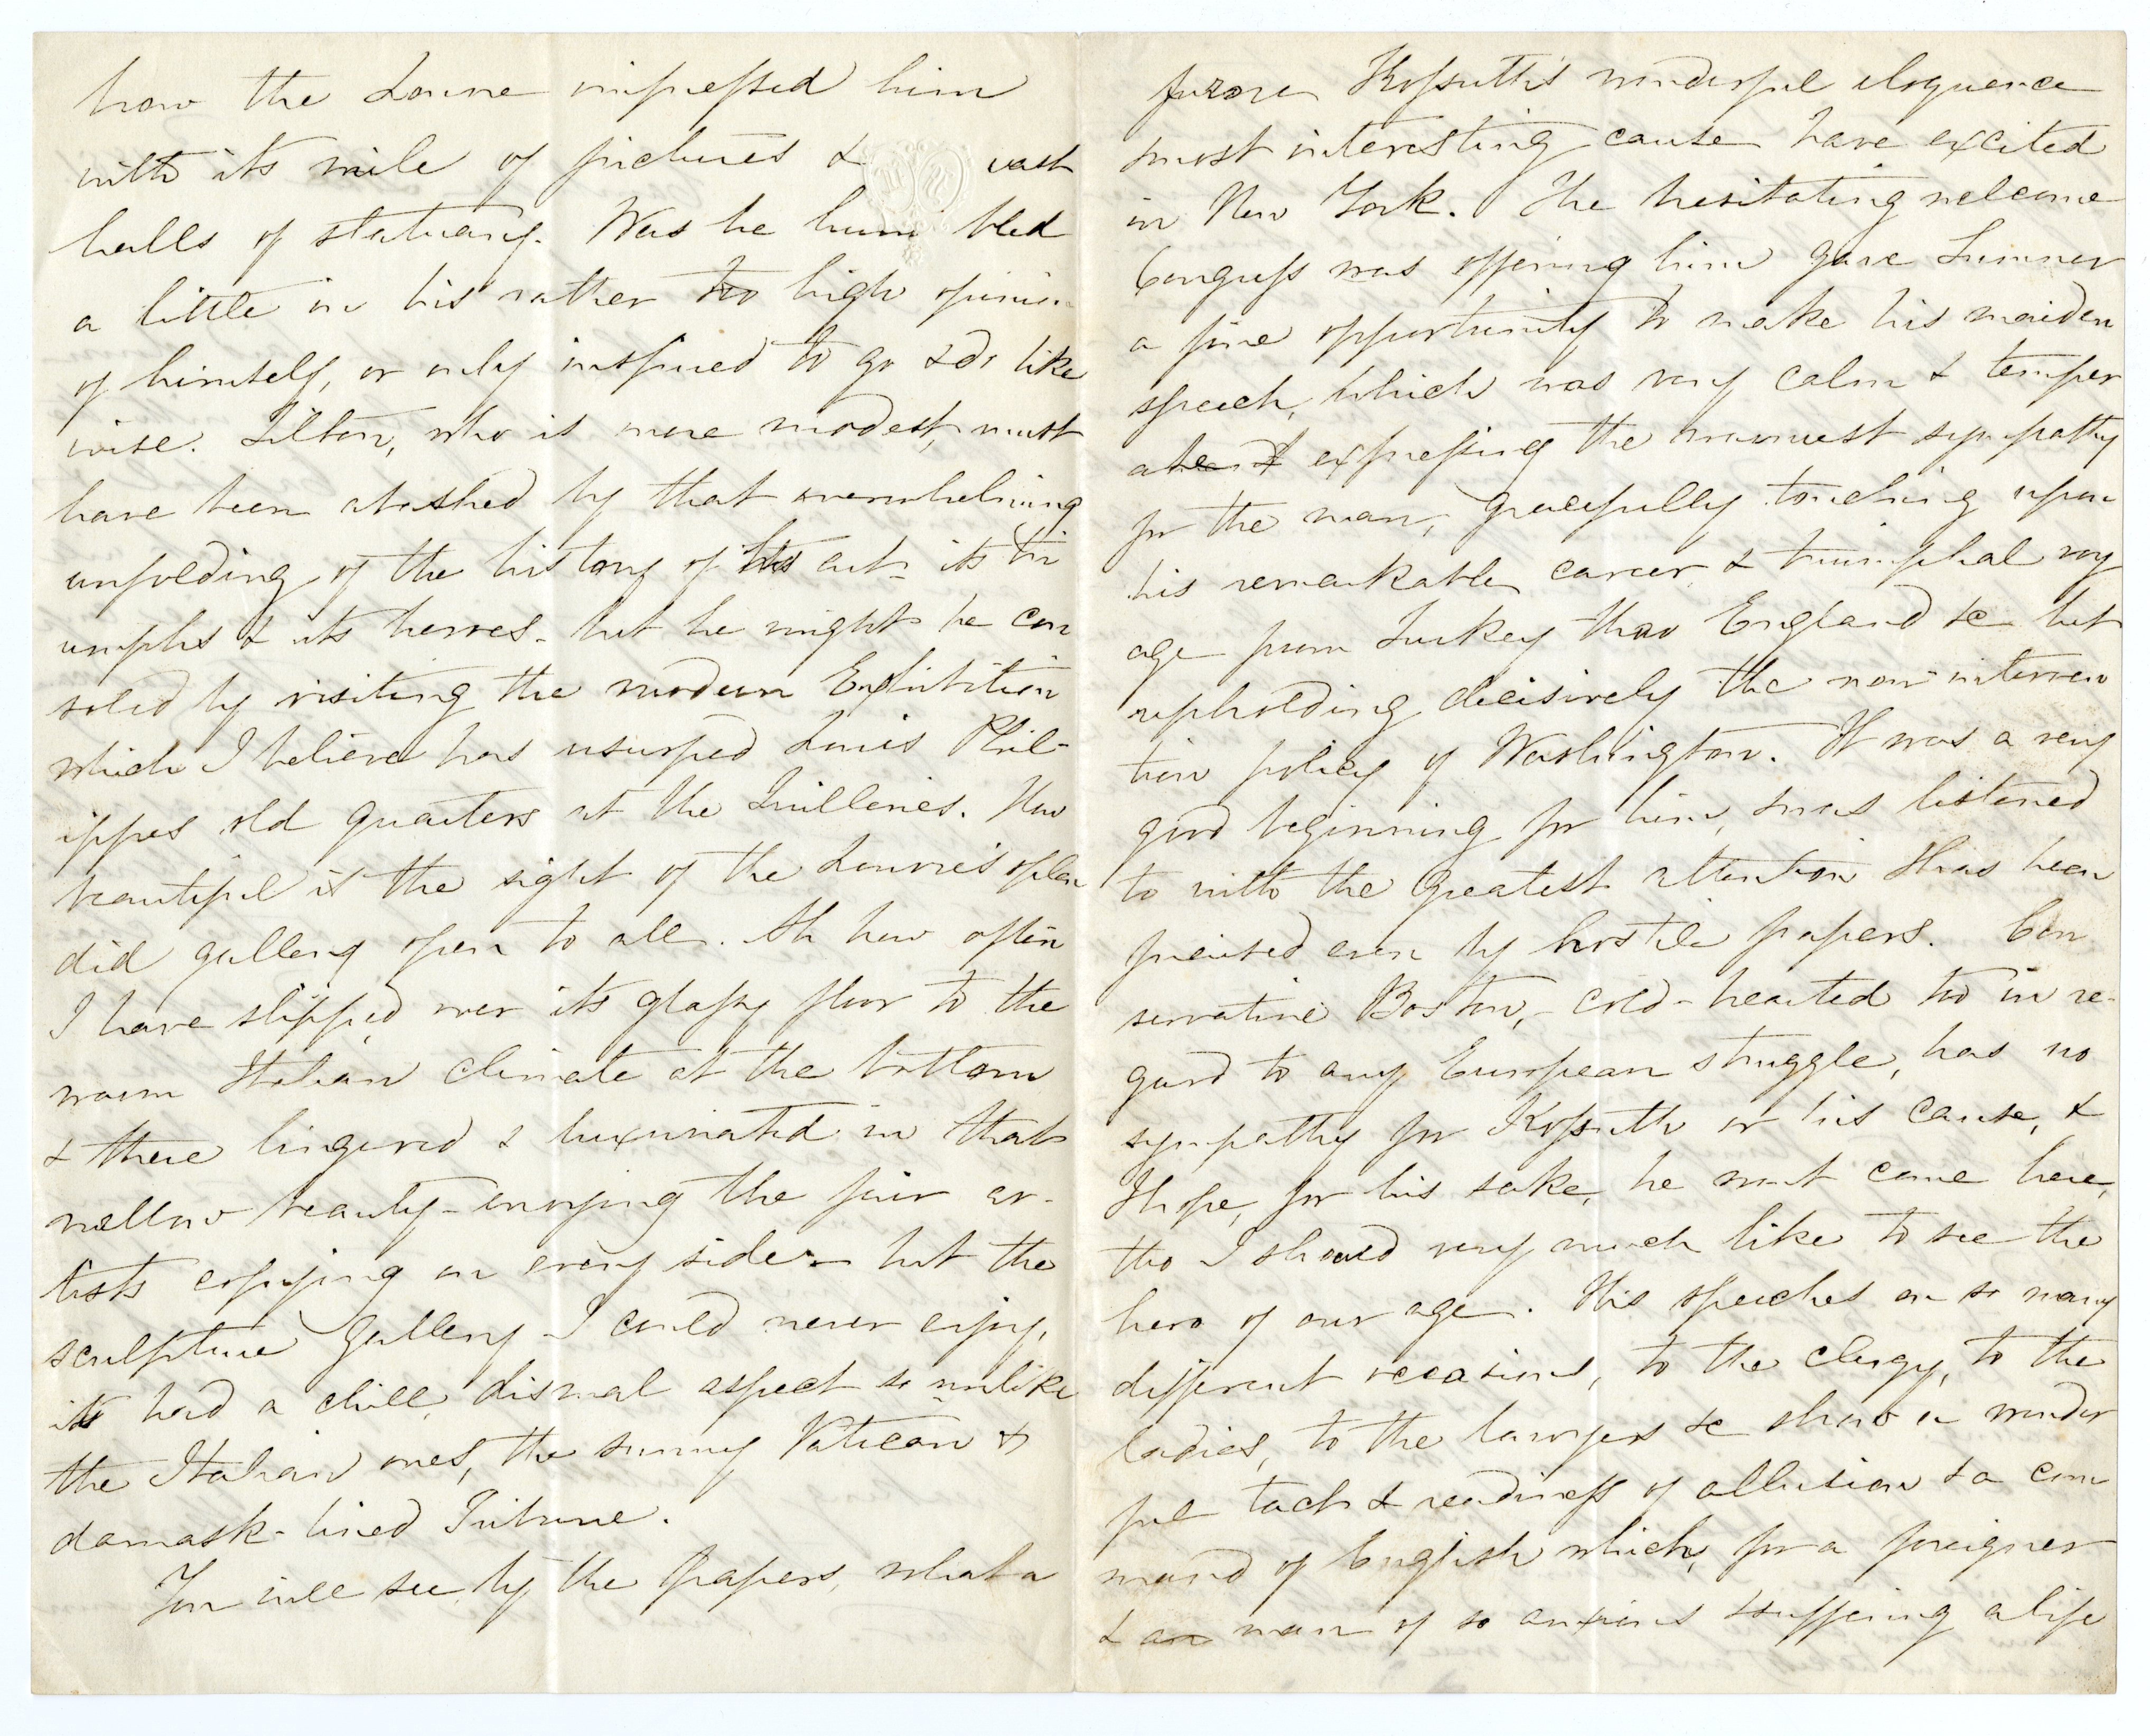 how the Louvre impressed him
with its mile of pictures & vast
halls of statuary. Was he hum bled
a little in his rather too high opinion
of himself, or only inspired to go & do like
wise. Tilton, who is more modest, must
have been abashed by that overwhelming
unfolding of the history of his art - its tri
umphs & its heroes - but he might be con
soled by visiting the modern Exhibition
which I believe has usurped Louis Phil-
ippes old quarters at the Tuilleries. How
beautiful is the sight of the Louvre's splen
did gallery open to all. Ah how often
I have slipped over its glassy floor to the
warm Italian climate at the bottom
& there lingered & luxuriated in that
mellow beauty - envying the fair ar-
tists copying on every side - but the
sculpture gallery I could never enjoy,
it had a chill, dismal aspect so unlike
the Italian ones, the sunny Vatican &
damask-lined Tribune.
You will see by the papers, what a
furore Kossuth's wonderful eloquence
most interesting cause have excited
in New York. The hesitating welcome
Congress was offering him gave Sumner
a fine opportunity to make his maiden
speech, which was very calm & temper
ate expressing the warmest sympathy
for the man, gracefully touching upon
his remarkable career & triumphal voy
age from Turkey thro England &c but
upholding decisively the non interven
tion policy of Washington. It was a very
good beginning for him, & was listened
to with the greatest attention & has been
praised even by hostile papers. Con
servative Boston, - cold-hearted too in re-
gard to any European struggle, has no
sympathy for Kossuth or his cause, &
I hope, for his sake, he wont come here,
tho I should very much like to see the
hero of our age. His speeches on so many
different occasions, to the clergy, to the
ladies, to the lawyers &c show a wonder
ful tact & readiness of allusion & a com
mand of English which, for a foreigner
& an man of so anxious & suffering a life